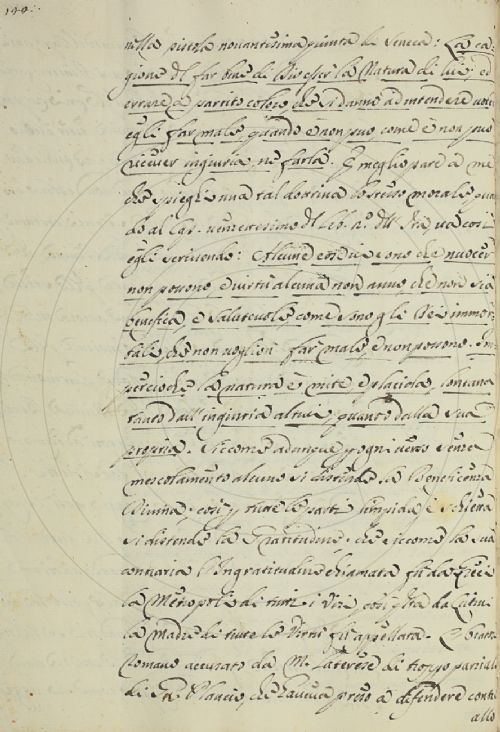 190.
nella pistola novantesima quinta di Seneca: La ca-
gione del far bene di Dio esser la Natura di lui, ed
errare a partito coloro, che si danno ad intendere, voler
egli far male, quando e non può, come e non può
ricever ingiuria, ne farla. E meglio pare a me
che spieghi una tal dottrina lo stesso morale, qua
do al Cap. ventesettesimo del lib. 2.º dell' Ira, va così
egli scrivendo: Alcune cose ci sono che nuocer
non possono, e virtù alcuna non anno che non sia
benefica, e salutevole, come sono gli Dei immor-
tali, che non voglion far male, e non possono. Im-
perciochè la natura è mite, e placida, lontana
tanto dall' ingiuria altrui, quanto dalla sua
propria. Siccome adunque per ogni verso senza
mescolamento alcuno si distende la Beneficenza
Divina, così per tutte le parti limpida, e schietta
si distende la Gratitudine, che siccome la sua
contraria l'Ingratitudine chiamata fu da
la Metropoli di tutti i Vizi, così sta da
la Madre di tutte le Virtù fu appellata. E
Romano accusato da M. Laterense di troppo parziale
di Gn. Plancio, che l'aveva preso a difendere conti
allo